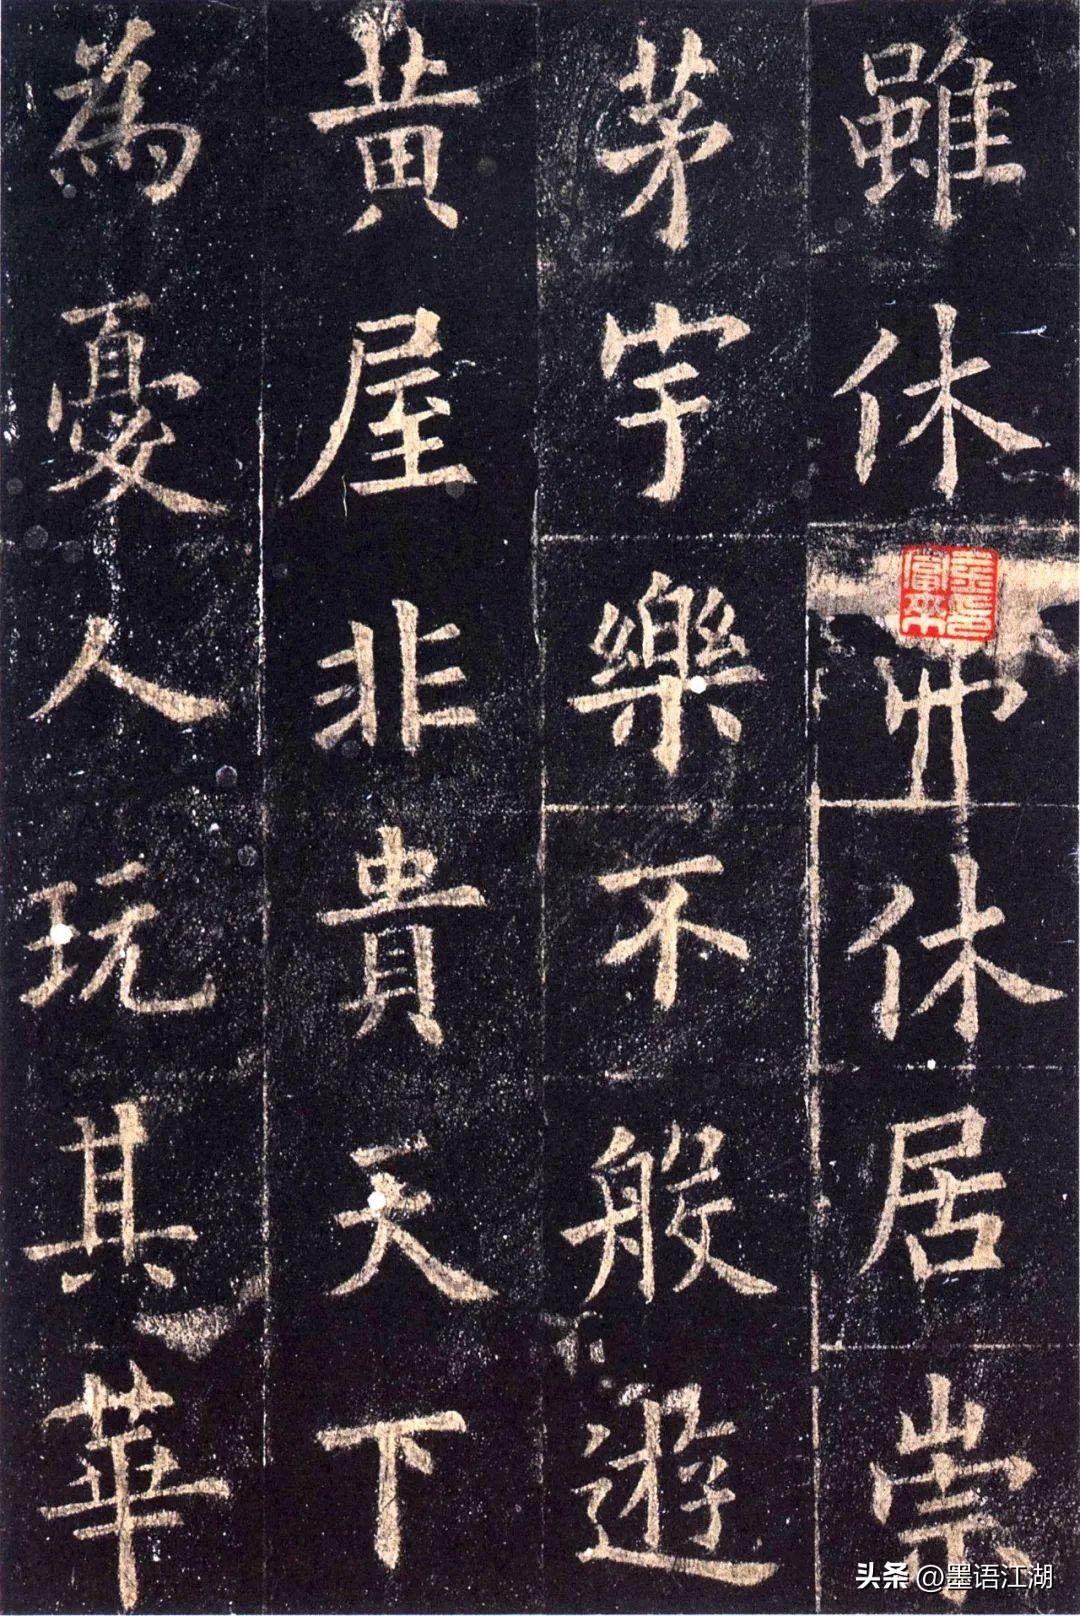 雖休休居崇
茅宇樂不般遊
黄屋非貴天下
為憂人玩其華
头条 @墨语江湖